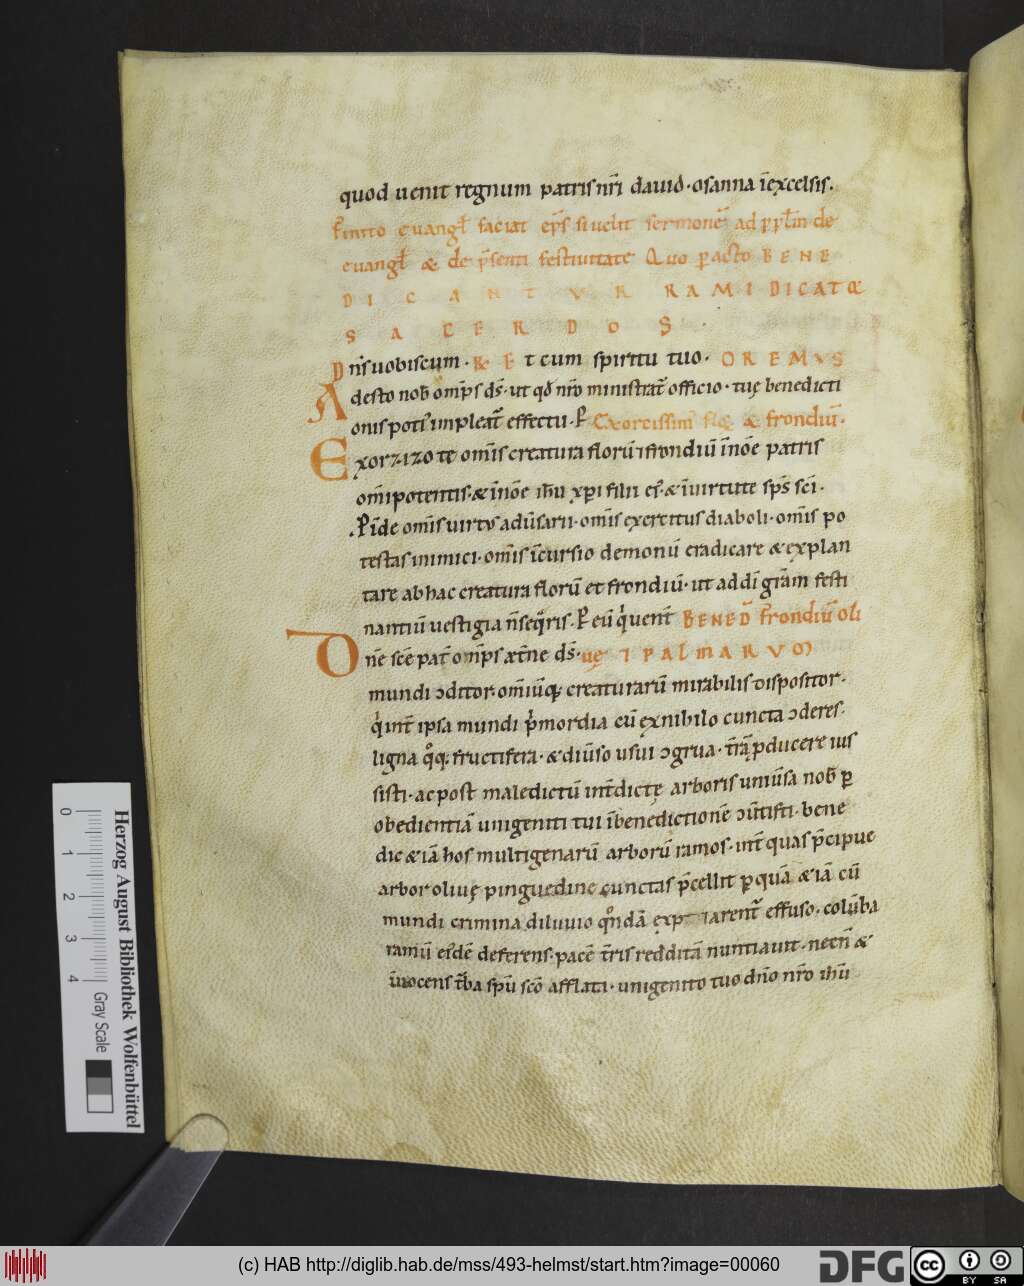 quod uenit regnum patris nr̄i dauid · osanna ī excelsis .
Finito euangl̄ faciat ep̄s si uelit sermonē ad pp̄lm de
euangl̄ & de p̄senti festiuitate Quo pacto BENE
DICANTVR RAMI DICAT &
SACERDOS .
Dn̄s uobiscum . R& Et cum spiritu tuo . OREMVS
Adesto nob̄ omp̄s ds̄ · ut qd̄ nr̄o ministrat̄ officio · tuę benedicti
onis poti᷒ impleat̄ effectu . P Exorcissim̄ flo℞ & frondiū .
Exorzizo te omīs creatura florū ⁊ frondiū ī nōe patris
omīpotentis · & ī nōe ih̄u xp̄i filii ei᷒ · & ī uirtute sp̄s sc̄i .
· Pīde omīs uirtus adūsarii · omīs exercitus diaboli · omīs po
testas inimici · omīs īcursio demonū eradicare & explan
tare ab hac creatura florū et frondiū · ut ad dī grām festi
nantiū uestigia n̄ seqͣris . P eū qͥ uent̄ BENED̄ frondiū oli
Dn̄e sc̄e pat̄ omp̄s æt̄ne ds̄ · uę ⁊ PALMARVM
mundi ↄditor · omīuq; creaturarū mirabilis dispositor ·
qͥ int̄ ipsa mundi pͥmordia cū ex nihilo cuncta ↄderes ·
ligna qͦq; fructifera · & diūso usui ↄgrua · t̄rā pducere ius
sisti · ac post maledictū int̄dictę arboris uniūsa nob̄ p
obedientiā unigeniti tui ī benedictionē ↄūtisti · bene
dic & iā hos multigenarū arborū ramos · int̄ quas p̄cipue
arbor oliuę pinguedine cunctas p̄cellit p quā & iā cū
mundi crimina diluuio qͦndā expiarent̄ effuso · colūba
ramū ei᷒dē deferens · pacē t̄ris redditā nuntiauit · necn̄ &
īnocens t̄ba sp̄u sc̄o afflata · unigenito tuo dn̄o nr̄o ih̄u
0 1 2 3 4
Gray Scale
Herzog August Bibliothek Wolfenbüttel
(c) HAB http://diglib.hab.de/mss/493-helmst/start.htm?image=00060
DFG
cc
BY SA